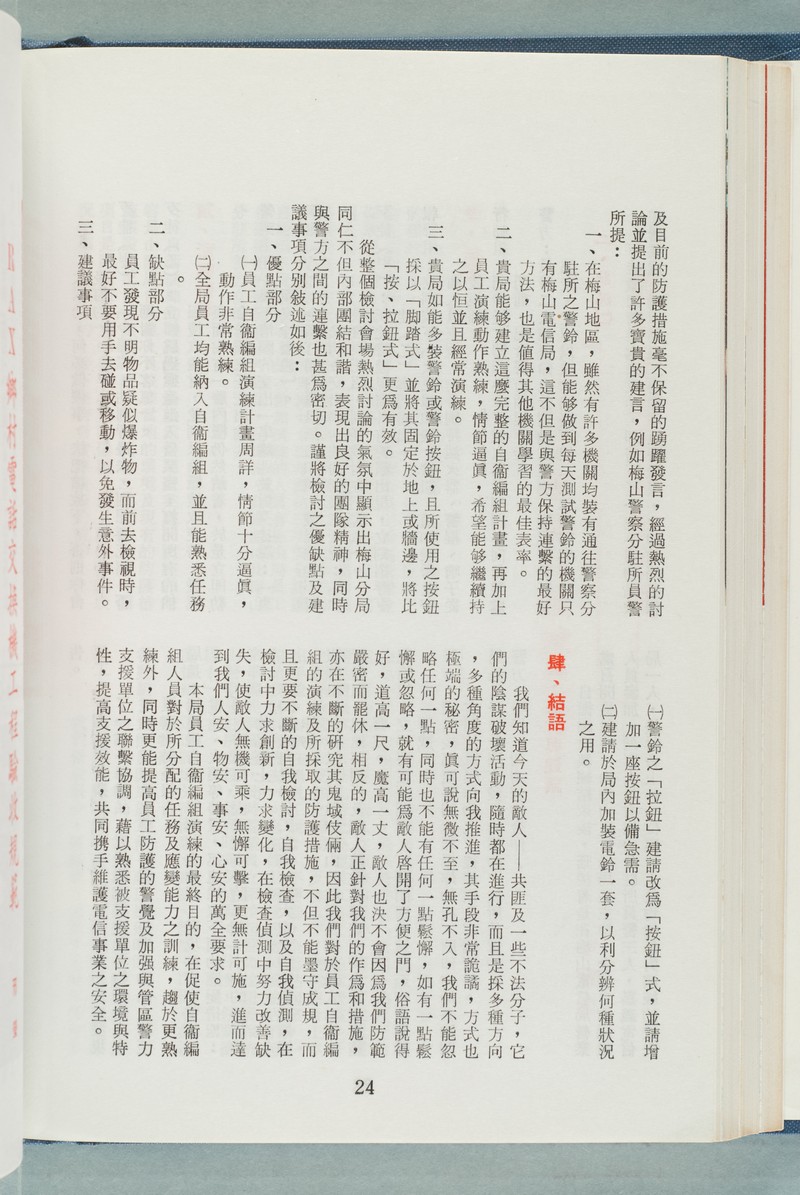 及目前的防護措施毫不保留的踴躍發言，經過熱烈的討
論並提出了許多寶貴的建言，例如梅山警察分駐所員警
所提：
一、在梅山地區，雖然有許多機關均裝有通往警察分
駐所之警鈴，但能够做到每天測試警鈴的機關只
有梅山電信局，這不但是與警方保持連繫的最好
方法，也是值得其他機關學習的最佳表率。
二、貴局能够建立這麼完整的自衞編組計畫，再加上
員工演練動作熟練，情節逼眞，希望能够繼續持
之以恒並且經常演練。
三、貴局如能多裝警鈴或警鈴按鈕，且所使用之按鈕
採以「脚踏式」並將其固定於地上或牆邊，將比
「按、拉鈕式」更爲有效。
從整個檢討會場熱烈討論的氣氛中顯示出梅山分局
同仁不但內部團結和諧，表現出良好的團隊精神，同時
與警方之間的連繫也甚爲密切。謹將檢討之優缺點及建
議事項分別敍述如後：
一、優點部分
㈠員工自衞編組演練計畫周詳，情節十分逼眞，
動作非常熟練。
㈡全局員工均能納入自衞編組，並且能熟悉任務
。
二、缺點部分
員工發現不明物品疑似爆炸物，而前去檢視時，
最好不要用手去碰或移動，以免發生意外事件。
三、建議事項
㈠警鈴之「拉鈕」建請改爲「按鈕」式，並請增
加一座按鈕以備急需。
㈡建請於局內加裝電鈴一套，以利分辨何種狀況
之用。
肆、結語
我們知道今天的敵人——共匪及一些不法分子，它
們的陰謀破壞活動，隨時都在進行，而且是採多種方向
，多種角度的方式向我推進，其手段非常詭譎，方式也
極端的秘密，眞可說無微不至，無孔不入，我們不能忽
略任何一點，同時也不能有任何一點鬆懈，如有一點鬆
懈或忽略，就有可能爲敵人啓開了方便之門，俗語說得
好，道高一尺，魔高一丈，敵人也決不會因爲我們防範
嚴密而罷休，相反的，敵人正針對我們的作爲和措施，
亦在不斷的研究其鬼域伎倆，因此我們對於員工自衞編
組的演練及所採取的防護措施，不但不能墨守成規，而
且更要不斷的自我檢討，自我檢查，以及自我偵測，在
檢討中力求創新，力求變化，在檢查偵測中努力改善缺
失，使敵人無機可乘，無懈可擊，更無計可施，進而達
到我們人安、物安、事安、心安的萬全要求。
本局員工自衞編組演練的最終目的，在促使自衞編
組人員對於所分配的任務及應變能力之訓練，趨於更熟
練外，同時更能提高員工防護的警覺及加强與管區警力
支援單位之聯繫協調，藉以熟悉被支援單位之環境與特
性，提高支援效能，共同携手維護電信事業之安全。
24